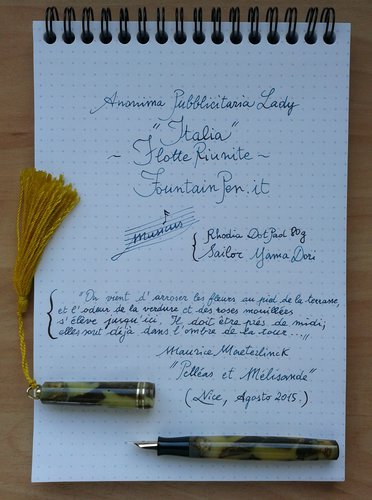 Anonima Pubblicitaria Lady
"Italia"
~ Flotte Riunite ~
FountainPen.it
musicus
Rhodia DotPad 80g
Sailor Yama Dori
"On vient d'arroser les fleurs au pied de la terrasse,
et l'odeur de la verdure et des roses mouillées
s'élève jusqu'ici. Il doit être près de midi,
elles sont déjà dans l'ombre de la tour..."
Maurice Maeterlinck
"Pelléas et Mélisande"
(Nice, Agosto 2015.)